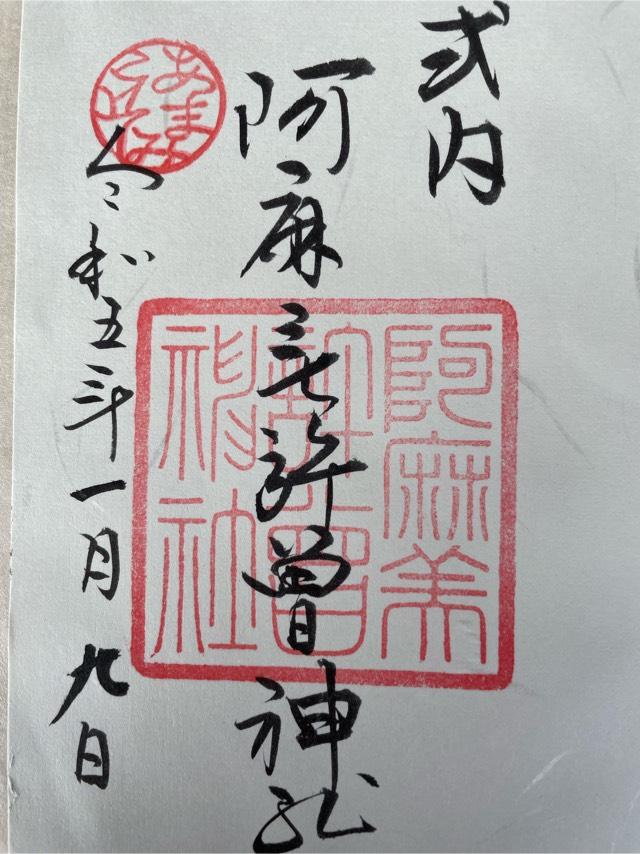 式内
阿麻美許曽神社
令和五年一月九日
阿麻美
許曽
神社